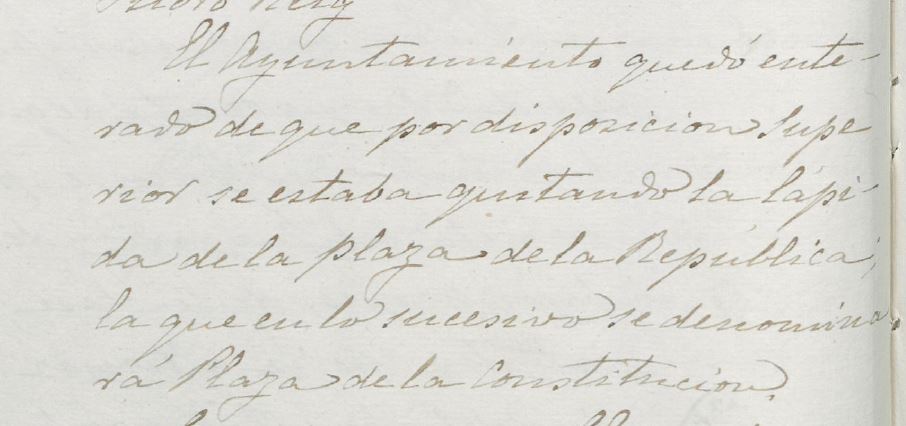 El Ayuntamiento quedó ente-
rado de que por disposicion Supe
rior se estaba quitando la lápi-
da de la plaza de la República;
la que en lo sucesivo se denomina
rá Plaza de la Constitucion.